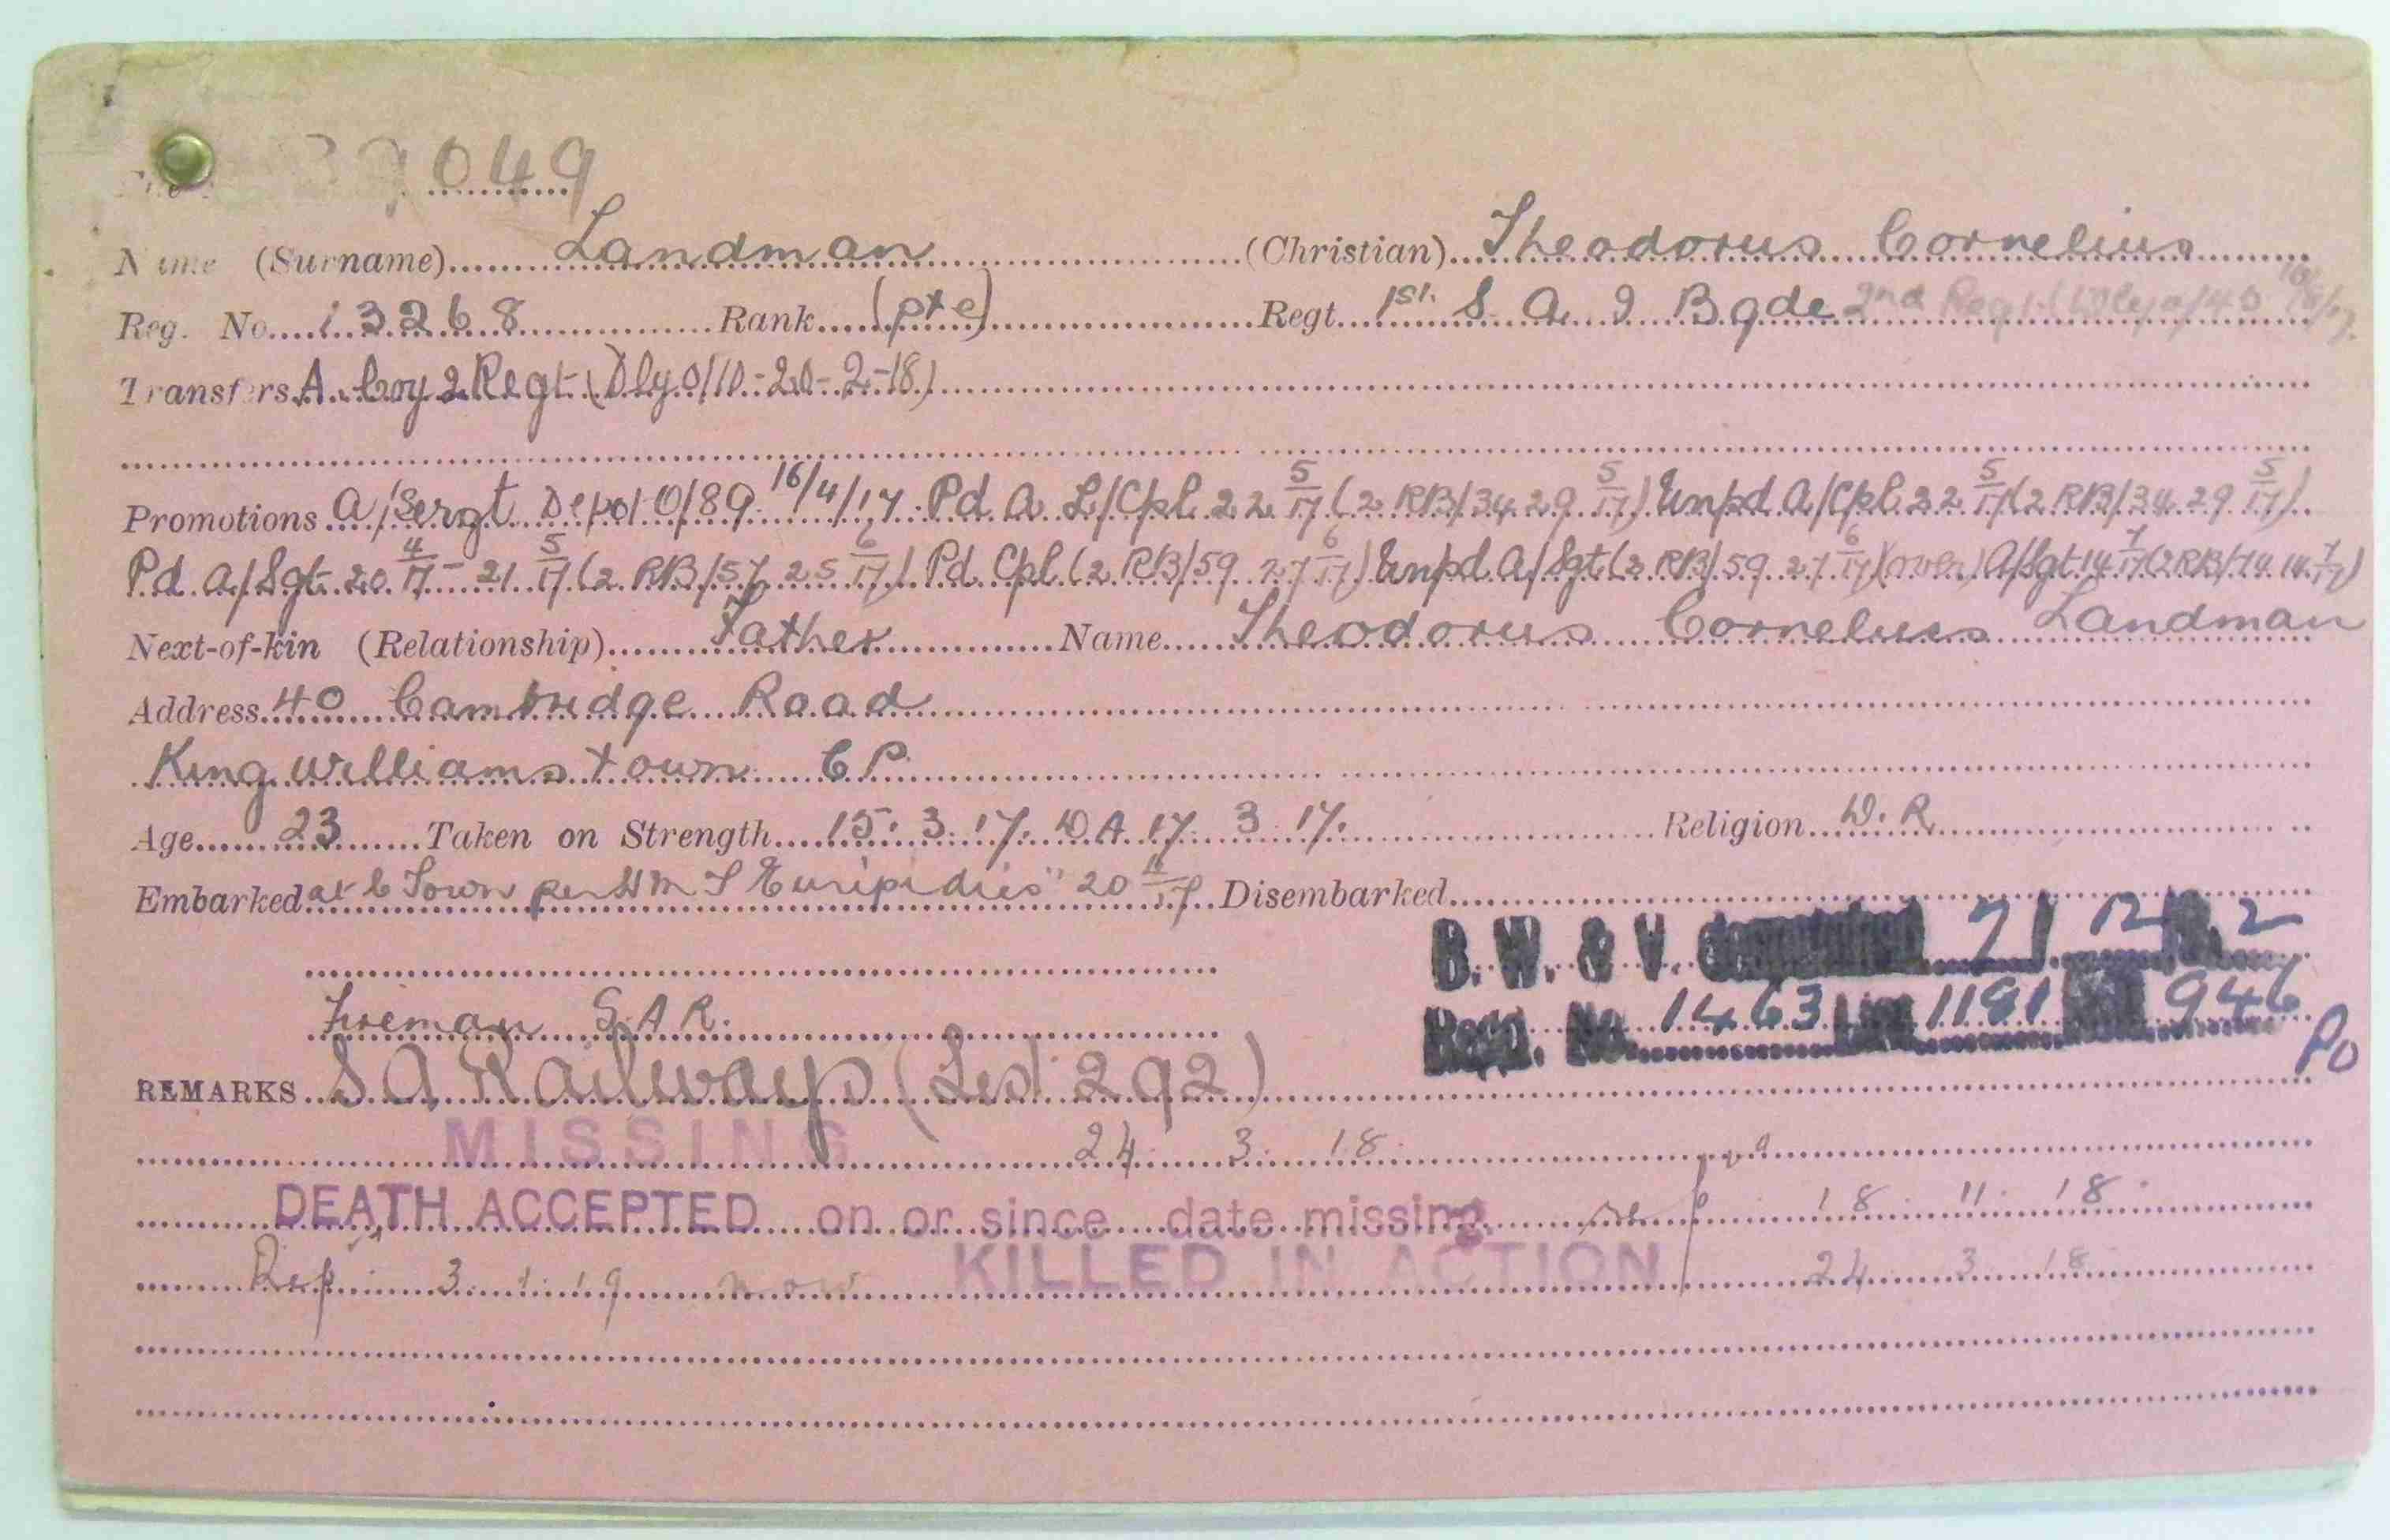 39049
Name (Surname) Landman (Christian) Theodorus Cornelius
Reg. No. 13268 Rank (pte) Regt. 1st. S A I Bgde 2nd Regt
Transfers A Coy 2 Regt (Dly O/10 - 20 - 2 - 18)
Promotions A/Sergt Depot O/89 16/4/17 Pd A L/Cpl 22 5/17 (2 RB/34 29 5/17) Unpd A/Cpl 22 5/17 (2 RB/34 29 5/17)
Pd A/Sgt 20 4/17 - 21 5/17 (2 RB/57 25 6/17) Pd Cpl (2 RB/59 27 6/17) Unpd A/Sgt (2 RB/59 27 6/17) (over) A/Sgt 14 7/17 (2RB/74 14 7/17)
Next-of-kin (Relationship) Father Name Theodorus Cornelius Landman
Address 40 Cambridge Road
King Williams Town C P.
Age 23 Taken on Strength 15. 3. 17. D A 17. 3. 17. Religion D. R
Embarked at C Town per H M T "Euripidies" 20 4/17 Disembarked
B. W. & V. 71 12 2
Fireman S. A R.
Reqn. No. 1463 1191 946
REMARKS S A Railways (List 292) PO
MISSING 24 3 18
DEATH ACCEPTED on or since date missing rep 18. 11. 18.
Rep 3. 1. 19 now KILLED IN ACTION 24 3 18